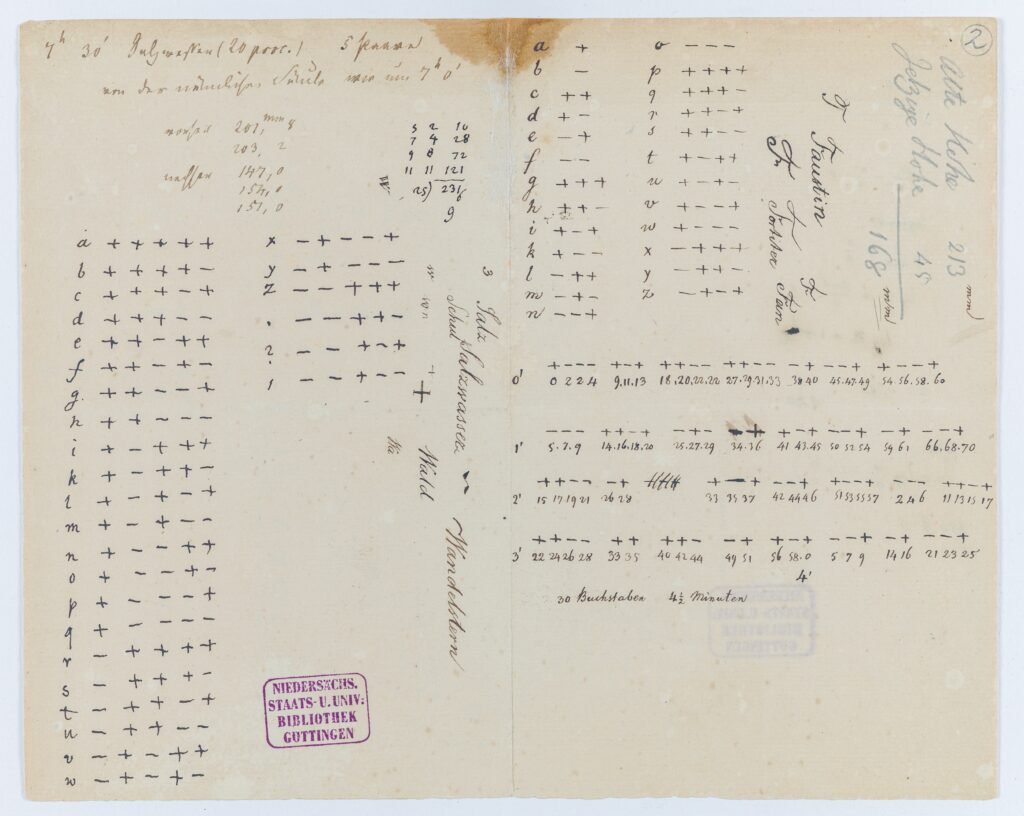 7ʰ 30′ Salzwasser (20 proc.) 5 Paare
von der nämlichen Säule wie um 7ʰ 0′
vorher 201,ᵐᵐ 8
203, 2
147,0
154,0
151,0
5 2 10
7 4 28
9 8 72
11 11 121
25) 231
9
a + + + + +
b + + + + -
c + + + - +
d + + + - -
e + + - + +
f + + - + -
g + + - - +
h + + - - -
i + - + + +
k + - + + -
l + - + - +
m + - + - -
n + - - + +
o + - - + -
p + - - - +
q + - - - -
r - + + + +
s - + + + -
t - + + - +
u - + + - -
v - + - + +
w - + - + -
x - + - - +
y - + - - -
z - - + + +
. - - + + -
? - - + - +
! - - + - -
W
w
wn
+
+
Wald
Wa
3
Salz
Schul Salzwasser
Wandelstern
NIEDERSÄCHS.
STAATS-U.UNIV:
BIBLIOTHEK
GÖTTINGEN
a +
b -
c + +
d + -
e - +
f - -
g + + +
h + + -
i + - +
k + - -
l - + +
m - + -
n - - +
o - - -
p + + + +
q + + + -
r + + - +
s + + - -
t + - + +
u + - + -
v + - - +
w + - - -
x - + + +
y - + + -
z - + - +
F F F F
Faustin
Fr. Förster Fan
2
Alte Höhe 213 mm
Jetzige Höhe 45
168 mm
0′ 0 2 2 4 9.11.13 18.20.22.22 27.29.31.33 38 40 45.47.49 54.56.58.60
1′ 5.7.9 14.16.18.20 25.27.29 34.36 41 43.45 50 52 54 59 61 66.68.70
2′ 15 17 19 21 26 28 33 35 37 42 44 46 51 53 55 57 2 4 6 11 13 15 17
3′ 22 24 26 28 33 35 40 42 44 49 51 56 58.0 5 7 9 14 16 21 23 25
4′
30 Buchstaben 4½ Minuten